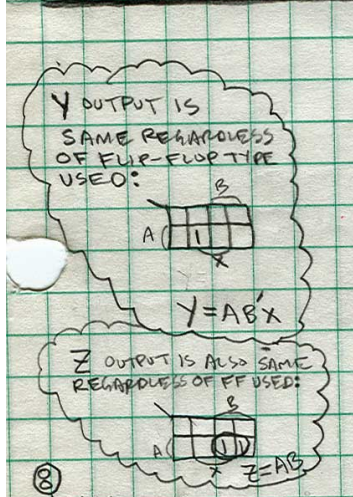 Y OUTPUT IS
SAME REGARDLESS
OF FLIP-FLOP TYPE
USED:
B
A
1
X
Y=AB'X
Z OUTPUT IS ALSO SAME
REGARDLESS OF FF USED:
B
A
1 1
X
Z=AB
8